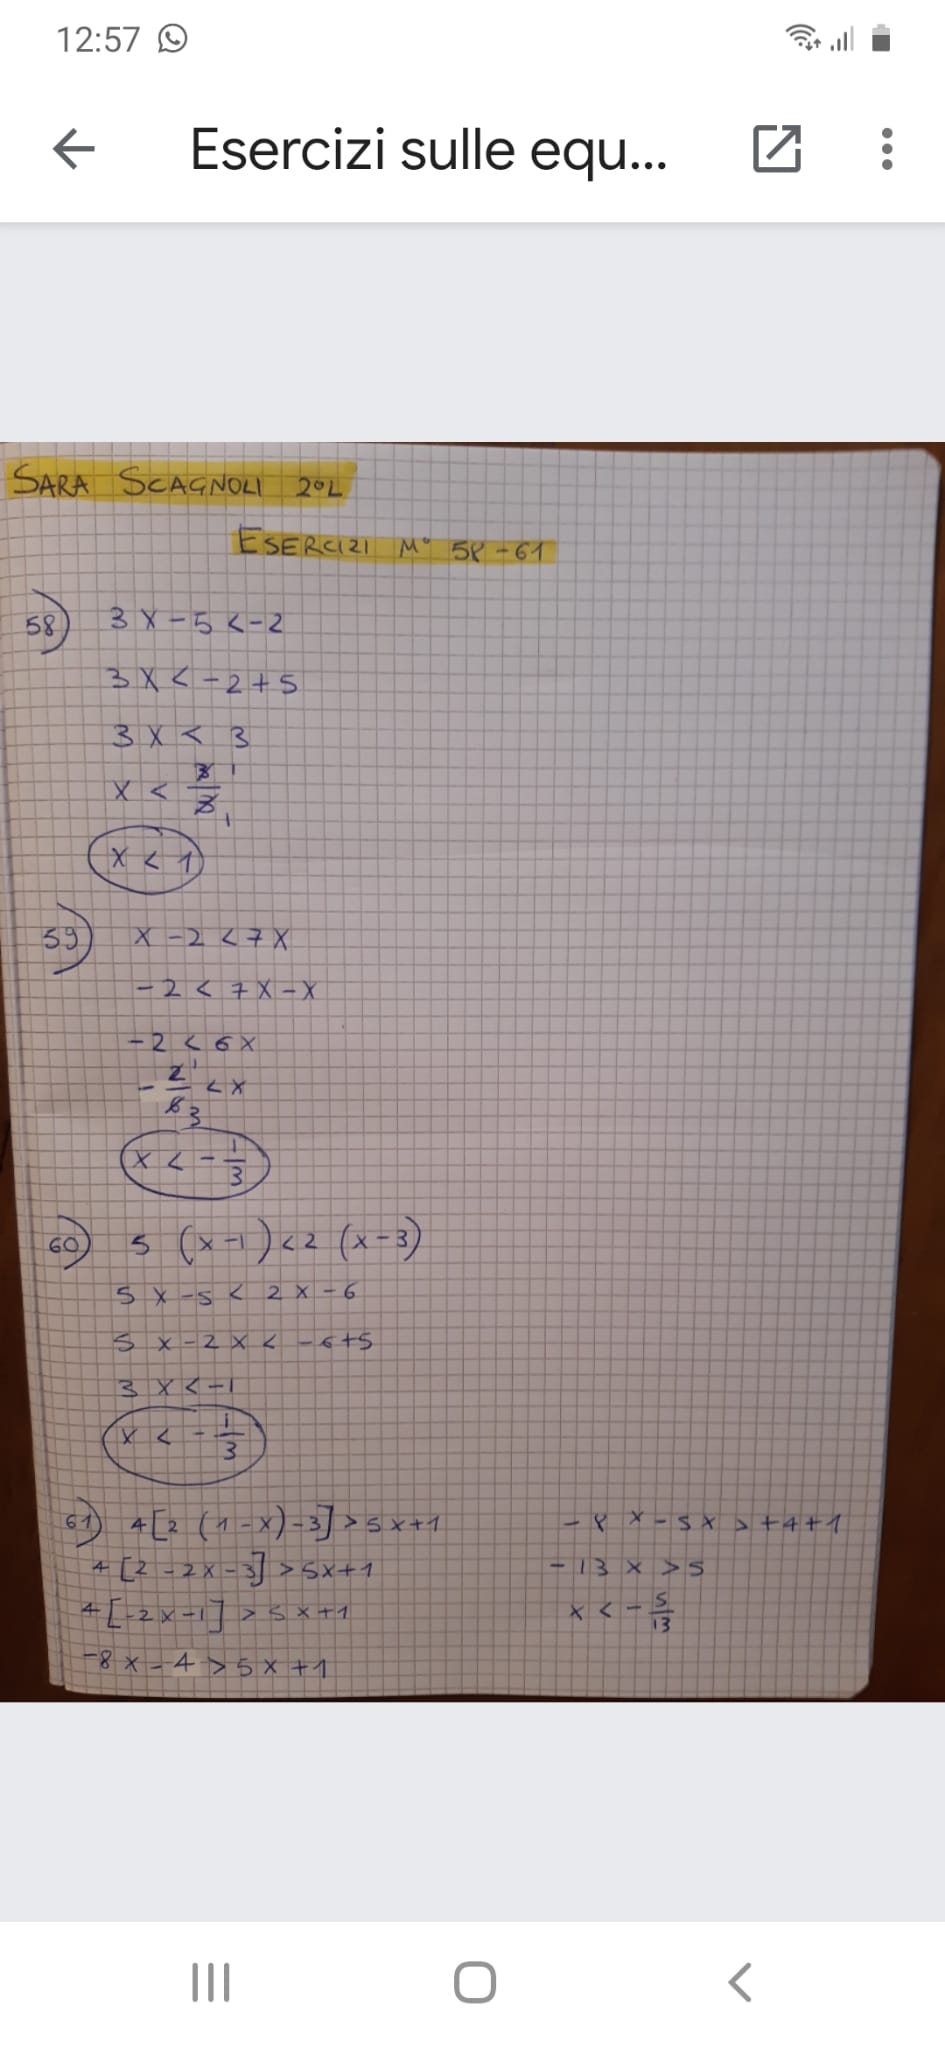 12:57
Esercizi sulle equ...
SARA SCAGNOLI 2°L
ESERCIZI N° 58-61
58) 3x-5<-2
3x<-2+5
3x<3
x<3/3 1 1
x<1
59) x-2<7x
-2<7x-x
-2<6x
-2/6 1 3 <x
x<-1/3
60) 5(x-1)<2(x-3)
5x-5<2x-6
5x-2x<-6+5
3x<-1
x<-1/3
61) 4[2(1-x)-3]>5x+1
4[2-2x-3]>5x+1
4[-2x-1]>5x+1
-8x-4>5x+1
-8x-5x>+4+1
-13x>5
x<-5/13